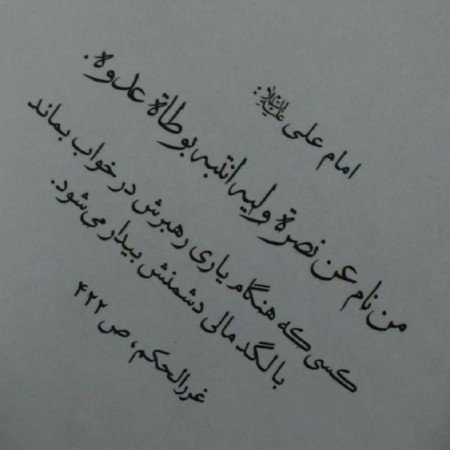 امام علی علیه‌السلام:
من نام عن نصرة ولیه انتبه بوطاة عدوه.
کسی که هنگام یاری رهبرش در خواب بماند
با لگد مالی دشمنش بیدار می‌شود.
غررالحکم، ص ۴۲۲